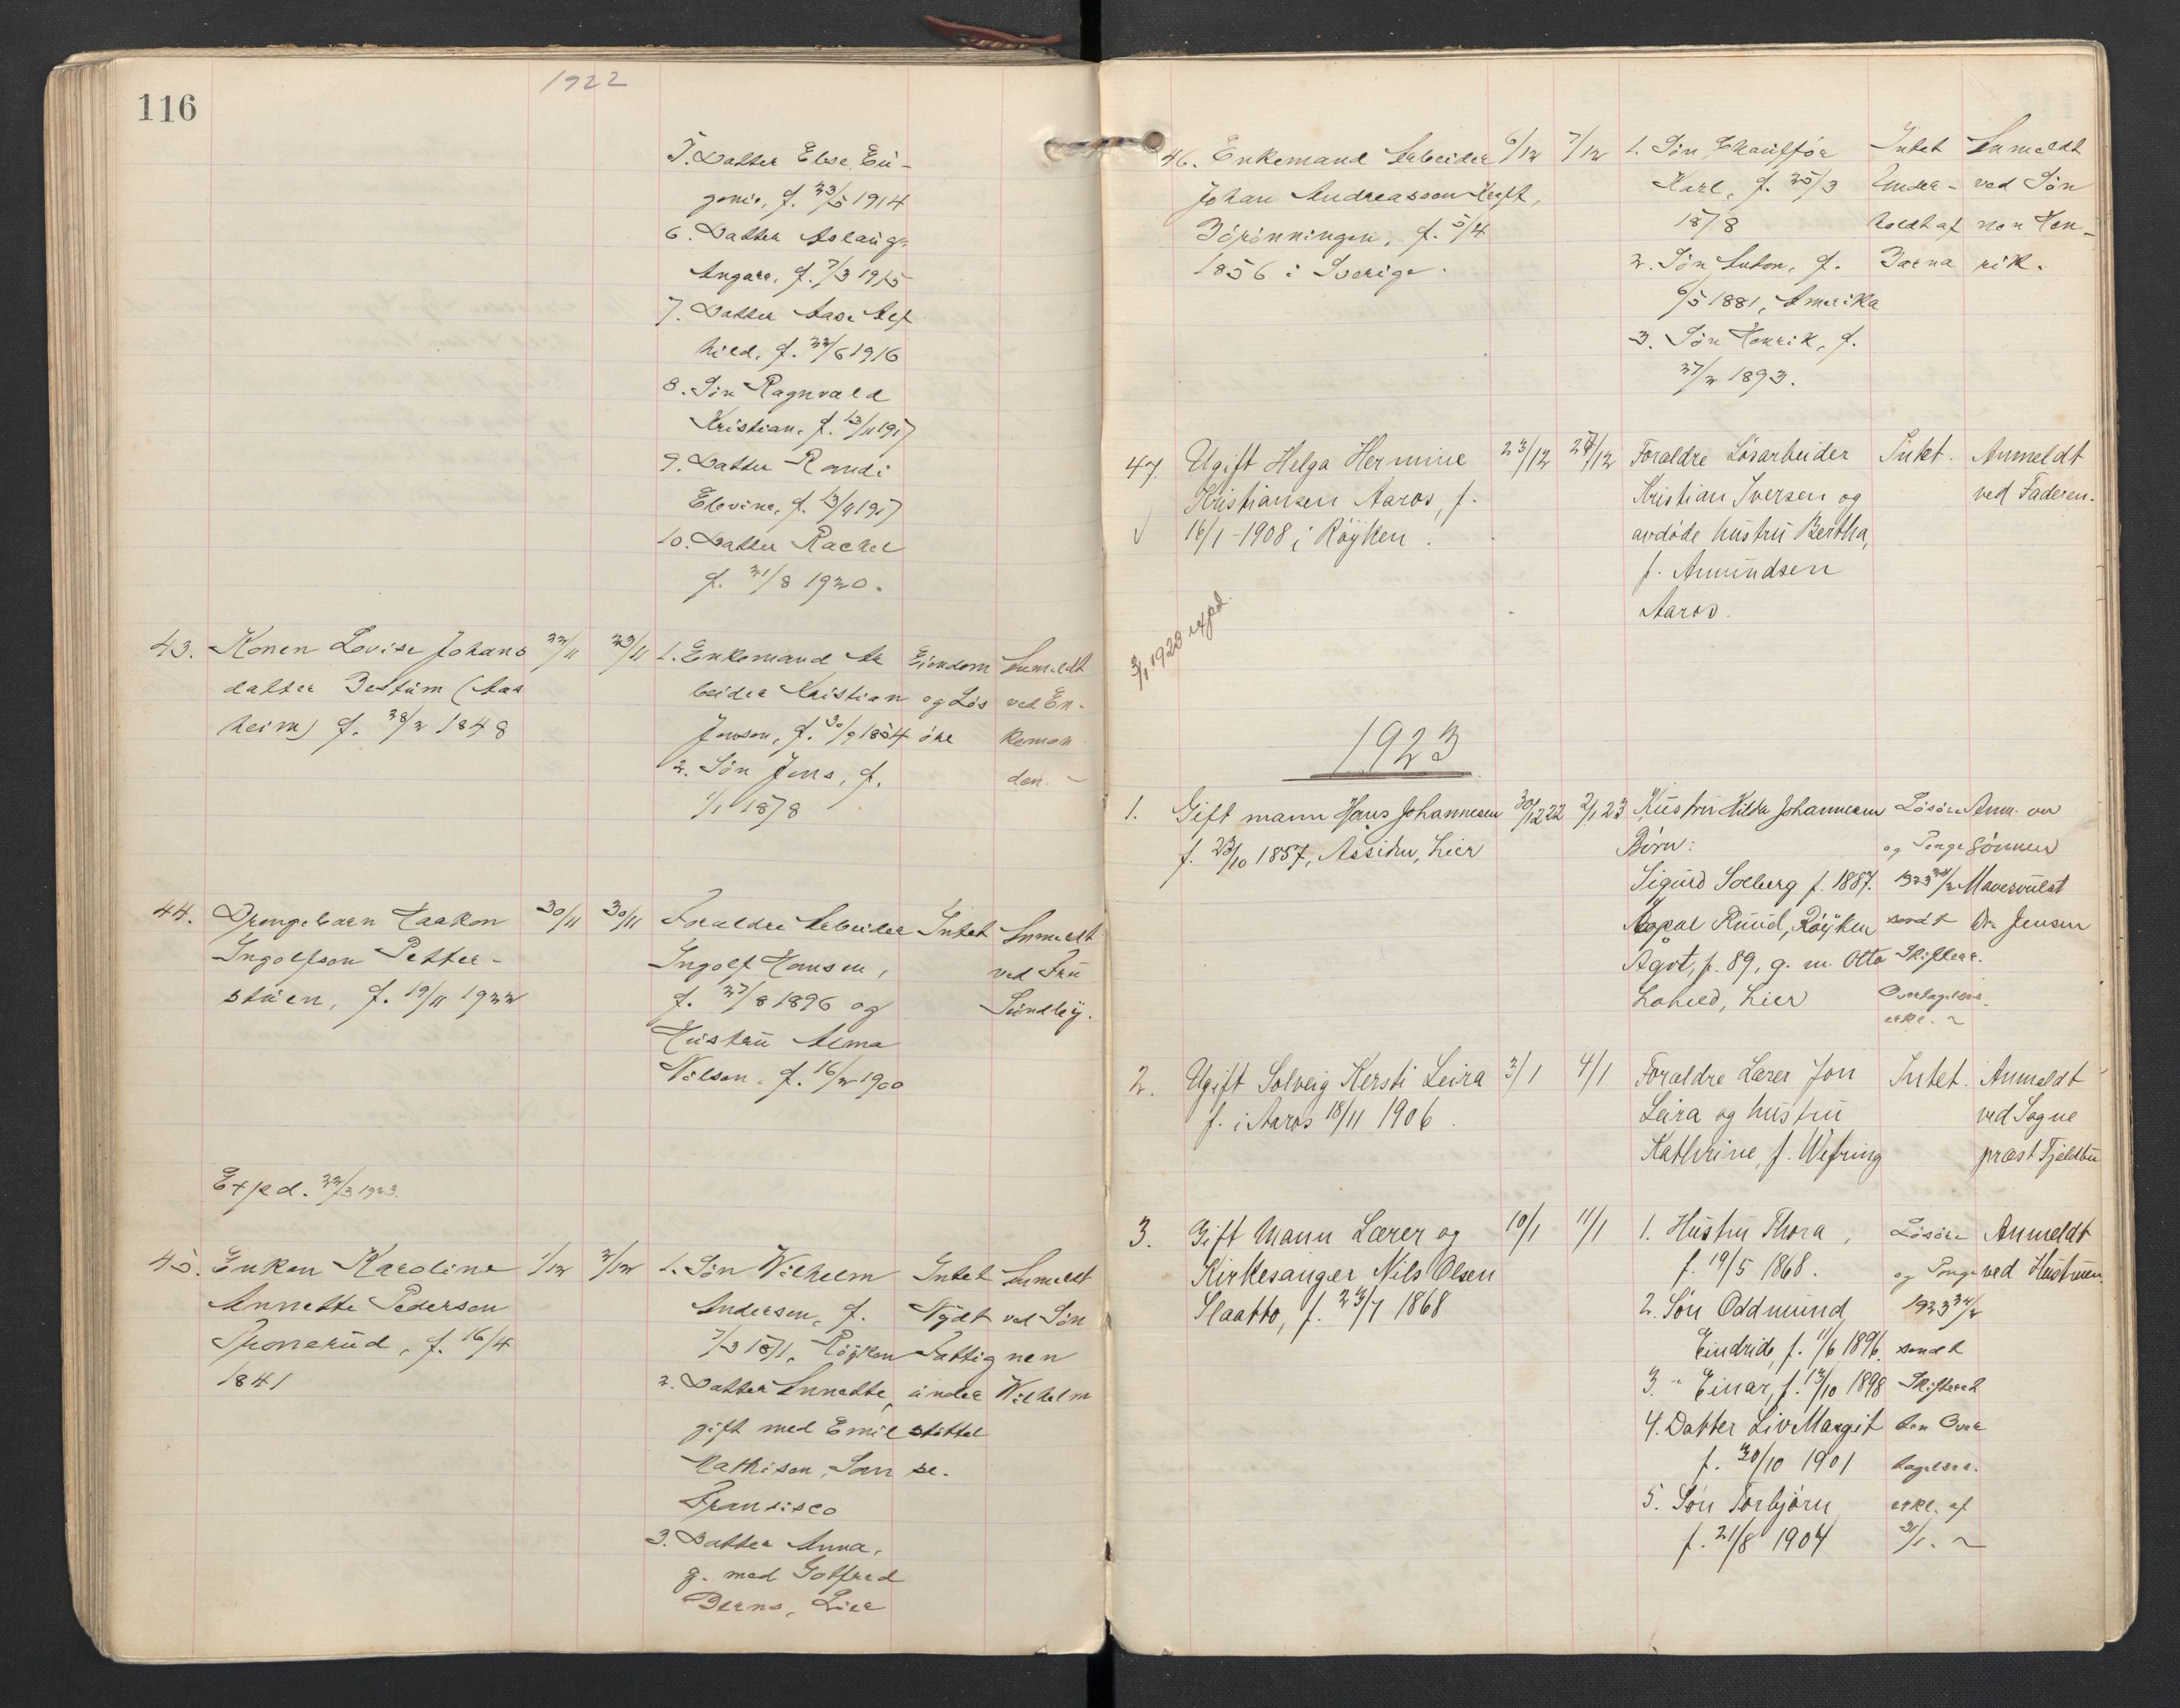 116
1922
5. Datter Else Eu-
genie, f. 23/5 1914
6. Datter Aslaug
Angara, f. 7/3 1915
7. Datter Aase Alf
hild, f. 22/6 1916
8. Søn Ragnvald
Kristian, f. 13/11 1917
9. Datter Randi
Elevine, f. 13/11 1917
10. Datter Rachel
f. 21/8 1920.
43. Konen Lovise Johans 22/11 23/11 1. Enkemand Ar Eiendom Anmeldt
datter Bestum (Aas beider Kristian og Løs ved En-
heim) f. 28/2 1848 Jonson, f. 30/9 1854 øre keman
2. Søn Jens, f. den. -
1/1 1878
44. Drengebarn Haakon 30/11 30/11 Forældre Arbeider Intet Anmeldt
Ingolfson Petter- Ingolf Hansen, ved Fru
stuen, f. 19/11 1922 f. 27/8 1896 og Sundby.
Hustru Alma
Nilsen, f. 16/2 1900
Exped. 22/3 1923.
45. Enken Karoline 1/12 2/12 1. Søn Wilhelm Intet Anmeldt
Annette Pedersen Andersen, f. Nydt ved Søn
Tronerud, f. 16/4 7/3 1871, Røyken Fattig nen
1841 2. Datter Annette, under Wilhelm
gift med Emil støttel
Mathisen, San se.
Fransisco
3. Datter Anna,
g. med Gotfred
Berns, Lier
46. Enkemand Arbeider 6/12 7/12 1. Søn Thaulfør Intet Anmeldt
Johan Andreasson Kreft, Karl, f. 25/3 Under- ved Søn
Börönningen, f. 5/4 1878 holdt af nen Hen-
1856 i Sverige. 2. Søn Anton, f. Barna rik.
6/5 1881, Amerika
3. Søn Henrik, f.
27/2 1893.
47. Ugift Helga Hermine 23/12 27/12 Forældre Løsarbeider Intet. Anmeldt
Kristiansen Aaros, f. Kristian Iversen og ved Faderen.
16/1-1908 i Røyken. avdøde hustru Bertha,
f. Amundsen
Aaros.
3/1 1923 expd.
1923
1. Gift mann Hans Johannesen 30/12 22 2/1 23 Hustru Hilda Johannesen Løsøre Anm. av
f. 23/10 1857, Assiden, Lier Børn: og Penge Sønnen
Sigurd Solberg f. 1887. 1923 24/2
Ruud, Røyken sendt Dr. Jensen
Ågot, f. 89, g. m. Otto Skifterr.
Lier Overtagelses-
erkl. ~
2. Ugift Solveig Kersti Leira 3/1 4/1 Forældre Lærer Jon Intet. Anmeldt
f. i Aaros 18/11 1906. Leira og hustru ved Sogne
Kathrine, f. Wefring præst Fjeldbu
3. Gift Mann Lærer og 10/1 11/1 1. Hustru Thora, Løsøre Anmeldt
Kirkesanger Nils Olsen f. 19/5 1868. og Penge ved Hustruen.
Slaatto, f. 23/7 1868 2. Søn Oddmund 1923 24/2
Eindride, f. 11/6 1896. sendt
3. " Einar, f. 13/10 1898 Skifteret
4. Datter Liv Margit ten Over
f. 30/10 1901 tagelses.
5. Søn Torbjørn erkl. af
f. 21/8 1904 31/1. ~